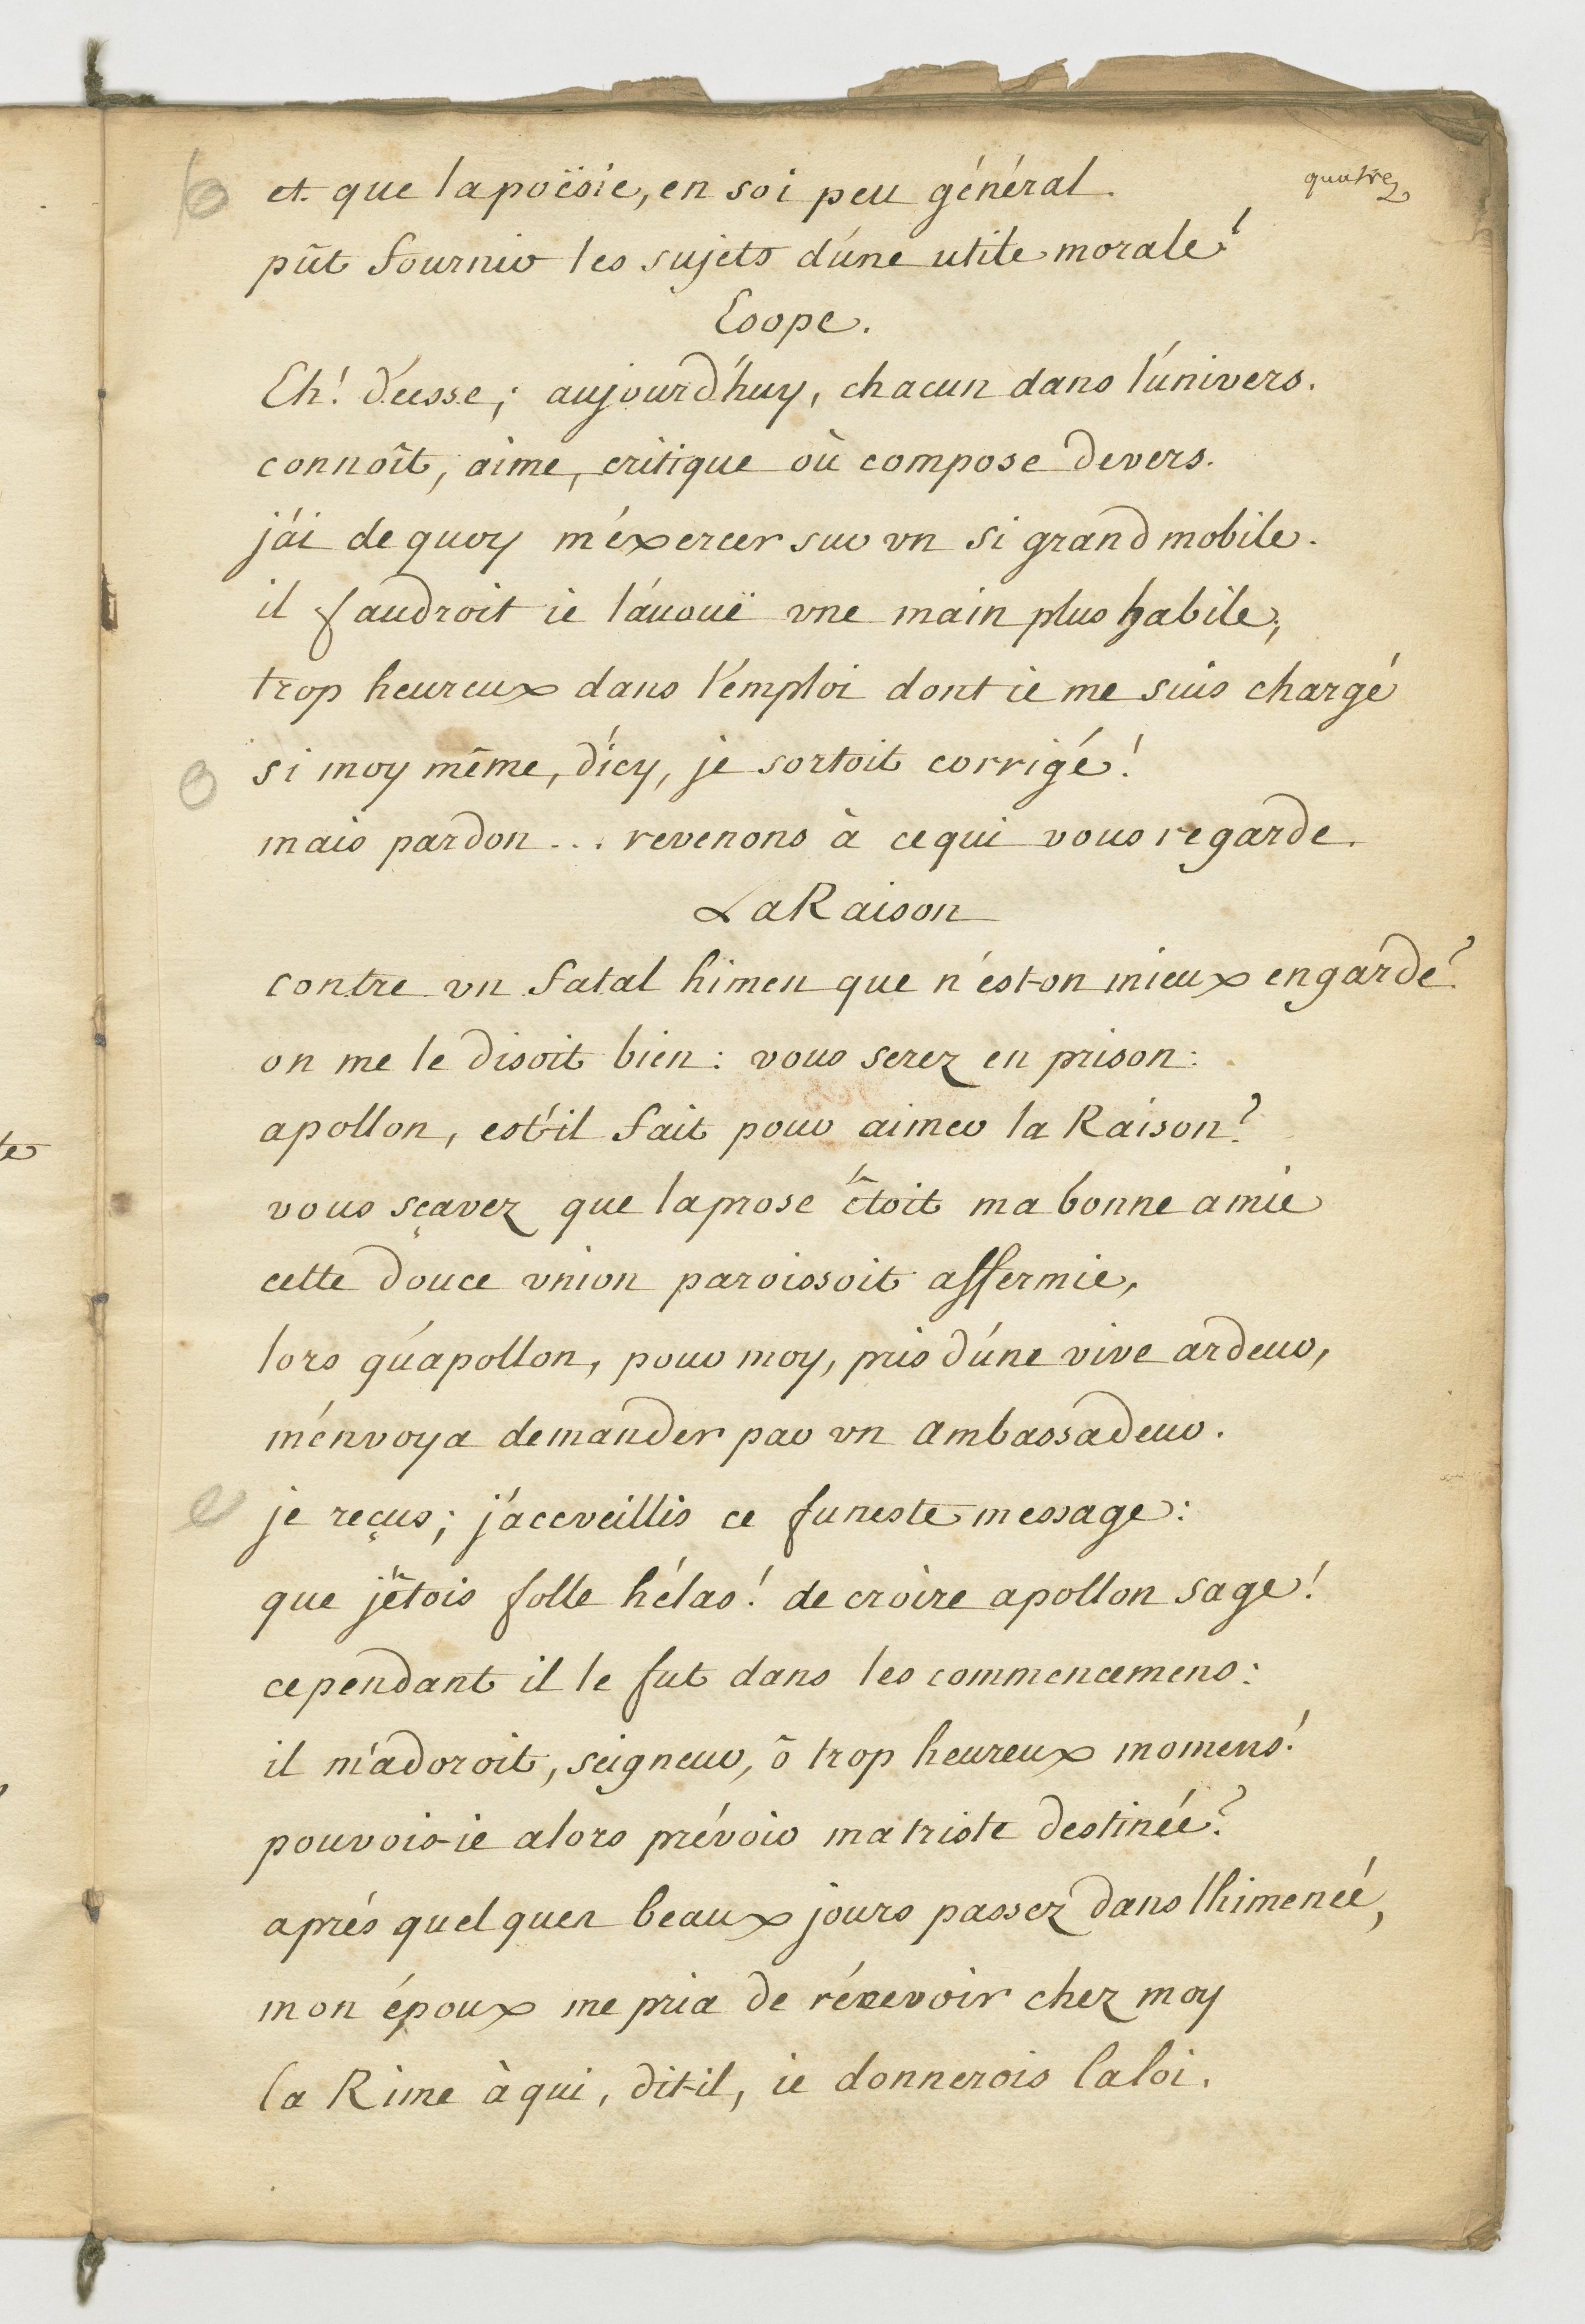 quatre
et que la poësie, en soi peu général.
pût fournir les sujets d'une utile morale?
Esope.
Eh! déesse; aujourd'huy, chacun dans l'univers.
connoît, aime, critique où compose de vers.
j'ai de quoy m'éxercer sur vn si grand mobile.
il faudroit ie l'auouë vne main plus habile;
trop heureux dans l'emploi dont ie me suis chargé
si moy même, d'icy, je sortoit corrigé!
mais pardon... revenons à ce qui vous regarde.
La Raison
contre vn fatal himen que n'est-on mieux en garde?
on me le disoit bien: vous serez en prison:
apollon, est-il fait pour aimer la Raison?
vous sçavez que la prose êtoit ma bonne amie
cette douce vnion paroissoit affermie,
lors qu'apollon, pour moy, pris d'une vive ardeur,
m'envoya demander par vn ambassadeur.
je reçus; j'acceveillis ce funeste message:
que j'êtois folle hélas! de croire apollon sage!
cependant il le fut dans les commencemens:
il m'adoroit, seigneur, ô trop heureux momens!
pouvois-ie alors prévoir ma triste destinée?
aprés quelques beaux jours passez dans l'himenée,
mon époux me pria de récevoir chez moy
la Rime à qui, dit-il, ie donnerois la loi.